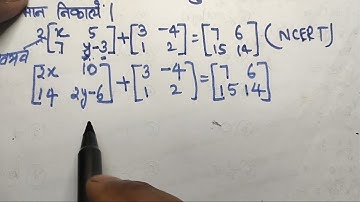 मान निकालें।
2[x 5 7 y-3] + [3 -4 1 2] = [7 6 15 14] (NCERT)
[2x 10 14 2y-6] + [3 -4 1 2] = [7 6 15 14]